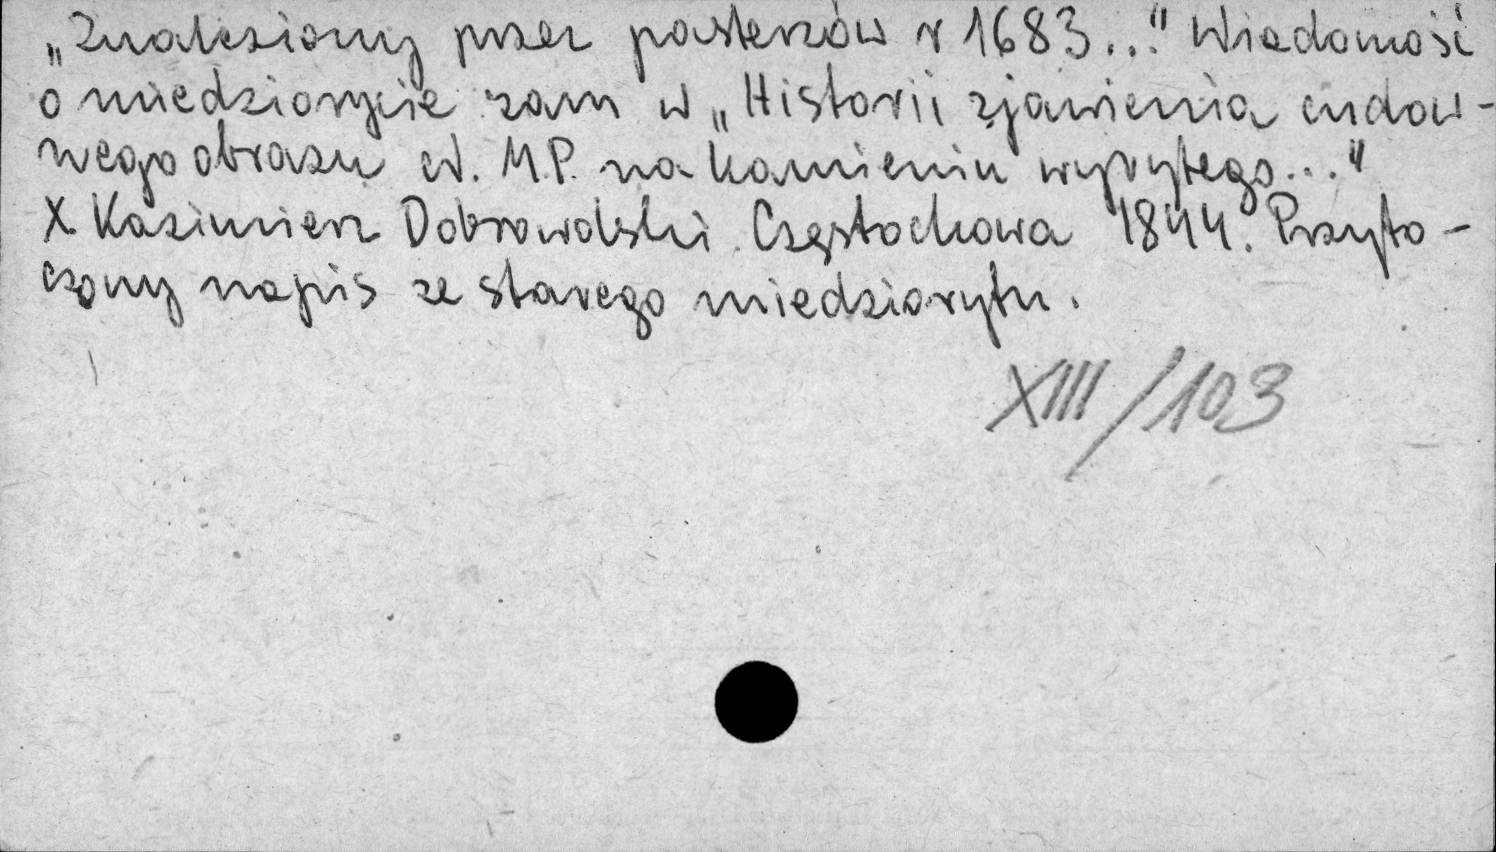 „Znaleziony przez pasterzów r 1683..." Wiadomość
o miedziorycie zam w „Historii zjawienia cudow-
nego obrazu N. M.P. na kamieniu wyrytego..."
X Kazimierz Dobrowolski. Częstochowa 1844. Przyto-
czony napis ze starego miedziorytu.
XIII/103